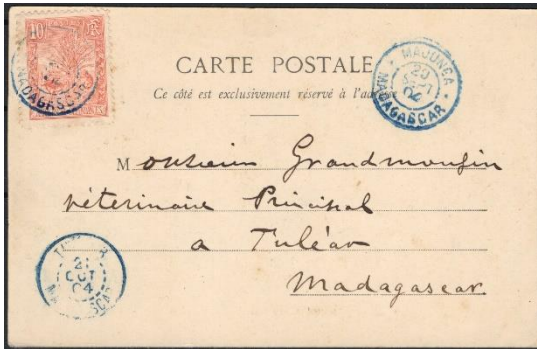 10
MADAGASCAR
CARTE POSTALE
Ce côté est exclusivement réservé à l'ad
MAJUNGA
04
MADAGASCAR
Monsieur Grandmougin
véterinaire Principal
a Tuléar
Madagascar.
21
OCT
04